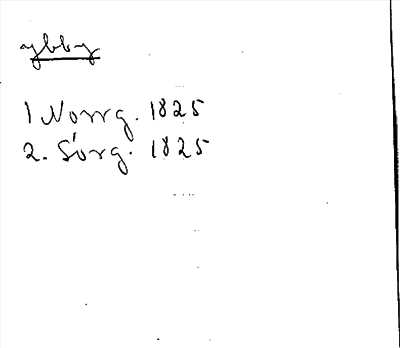 ybby
1 Norrg. 1825
2. Sörg. 1825